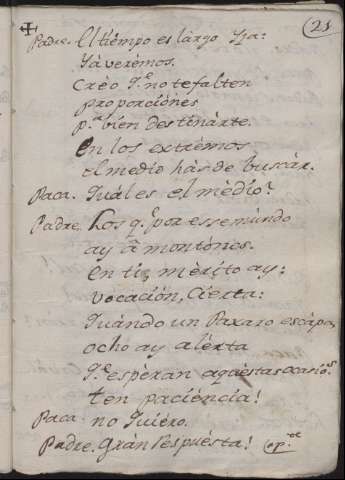 21
Padre. El tiempo es largo hija:
Yà verémos.
Créo q.e no te falten
proporciónes
p.a bien destinárte.
En los extrémos
el medio hàs de buscár.
Paca. Quàl es el mèdio?
Padre. Los q.e por esse mùndo
ay â montònes.
En ti, mèrito ay;
vocación, Cierta:
Quàndo un Paxaro escàpa,
ocho ay alèrta
q.e espèran aquèstas ocasio.s
ten paciència!
Paca. no Quièro.
Padre. Gràn respuèsta!